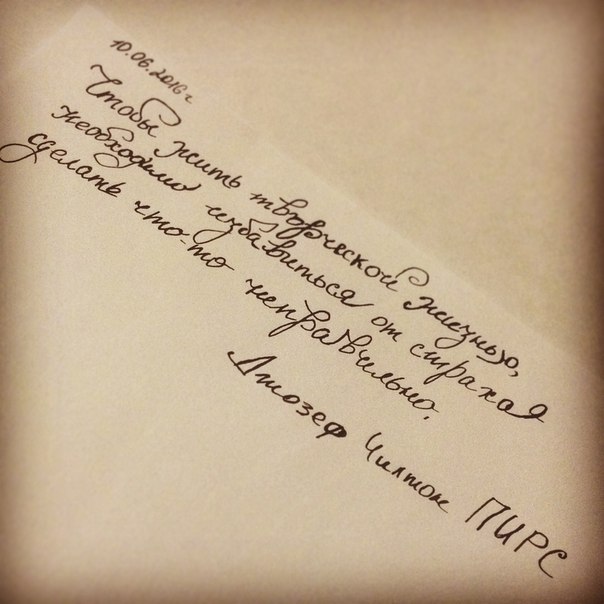 10.06.2016 г
Чтобы жить творческой жизнью,
необходимо избавиться от страха
сделать что-то неправильно.
Джозеф Чилтон ПИРС